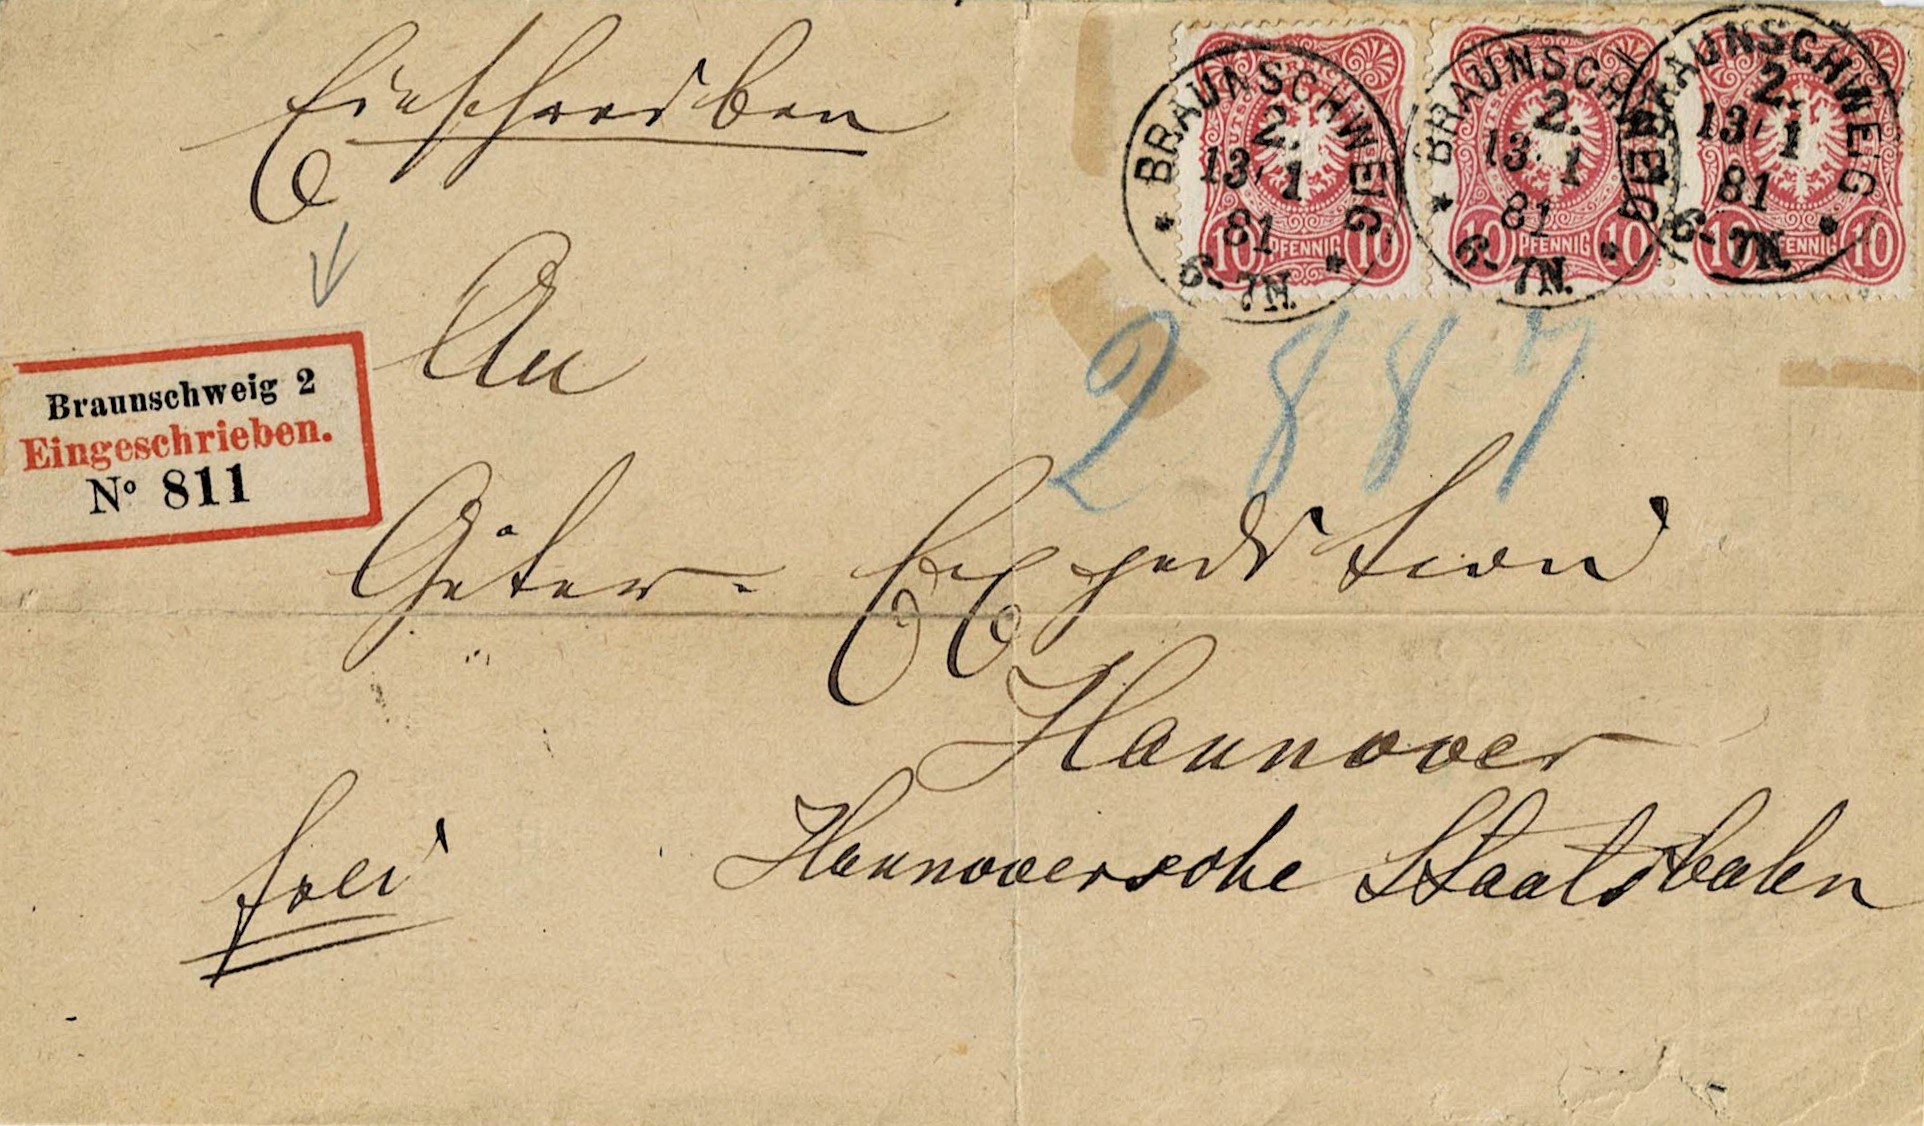 Einschreiben
BRAUNSCHWEIG
2.
13/1
81
6-7N.
10 PFENNIG 10
BRAUNSCHWEIG
2.
13/1
81
6-7N.
10 PFENNIG 10
BRAUNSCHWEIG
2.
13/1
81
6-7N.
10 PFENNIG 10
An
2887
Braunschweig 2
Eingeschrieben.
No 811
Güter-Expedition
Hannover
Hannoversche Staatsbahn
frei